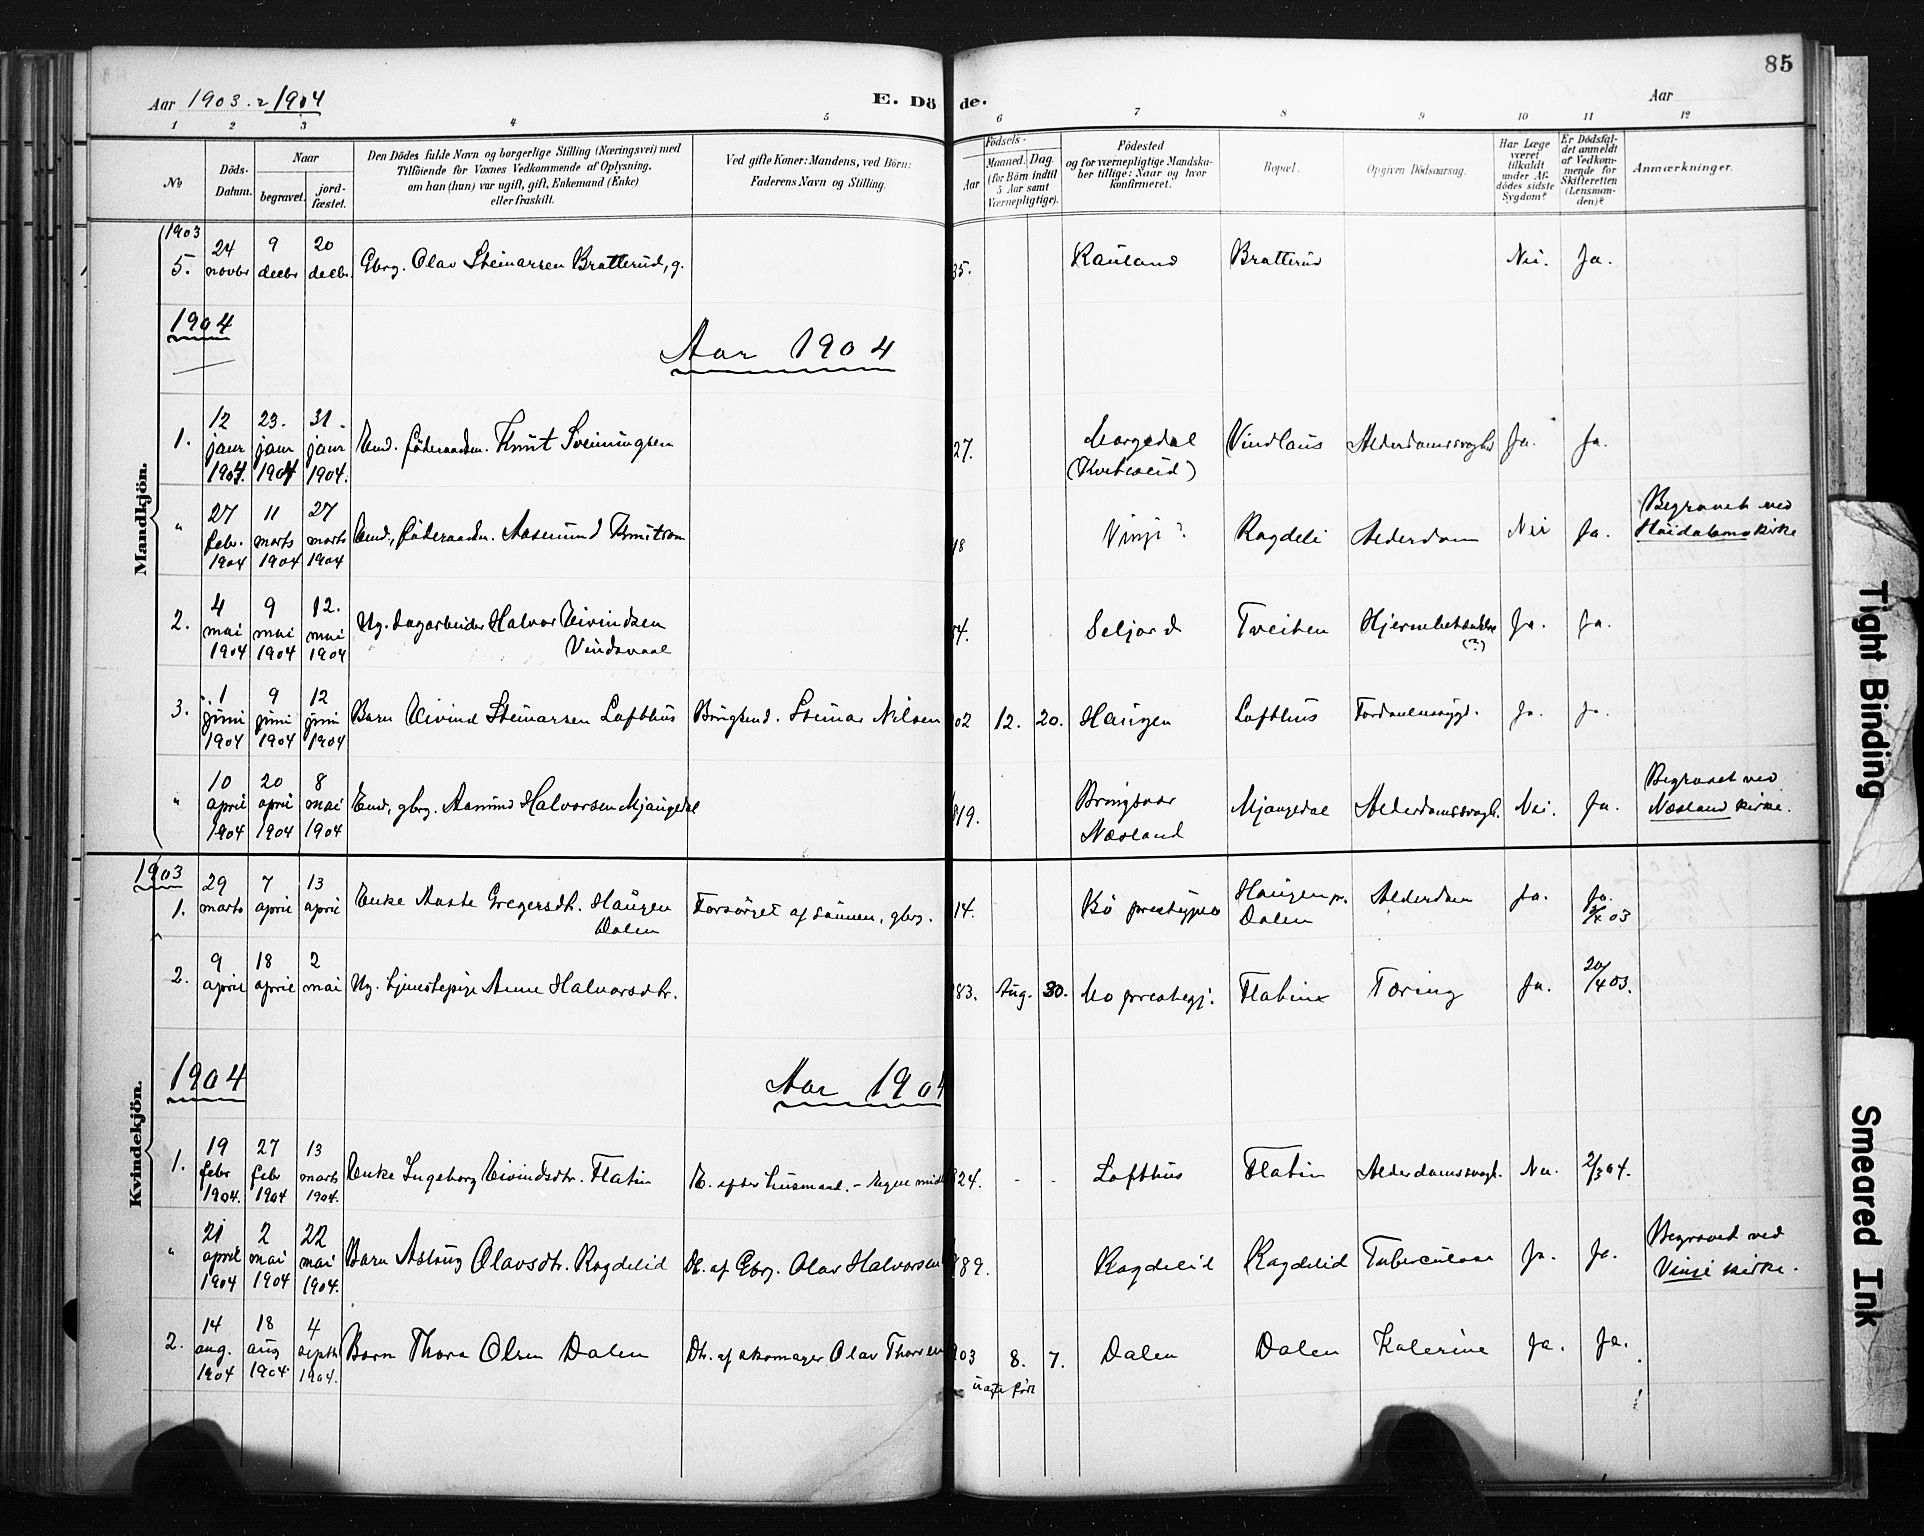 85
Aar 1903 & 1904
E. Dö de.
Aar
1 2 3 4 5 6 7 8 9 10 11 12
№
Döds-Datum.
Naar
begravet.
jordfæstet.
Den Dödes fulde Navn og borgerlige Stilling (Næringsvei) med
Tilföiende for Voxnes Vedkommende af Oplysning,
om han (hun) var ugift, gift, Enkemand (Enke)
eller fraskilt.
Ved gifte Koner: Mandens, ved Börn:
Faderens Navn og Stilling.
Födsels-
Aar
Maaned. Dag.
(for Börn indtil
5 Aar samt
Værnepligtige).
Födested
og for værnepligtige Mandska-
ber tillige: Naar og hvor
konfirmeret.
Bopæl.
Opgiven Dödsaarsag.
Har Læge
været
tilkaldt
under Af-
dödes sidste
Sygdom?
Er Dödsfal-
det anmeldt
af Vedkom-
mende for
Skifteretten
(Lensman-
den)?
Anmærkninger.
Mandkjön.
1903
5. 24 novbr 9 decbr 20 decbr. Gbrg. Olav Steinarsen Bratterud, g. 35. Rauland Bratterud Nei. Ja.
1904
Aar 1904
1. 12 janr 1904. 23. janr 1904 31. janr 1904. Knut Sveinungsen 27. Morgedal (Kviteseid) Vindlaus Alderdomssvagh. Ja. Ja.
" 27 febr. 1904 11 marts 1904 27 marts 1904 Aasmund Knutson 18 Vinje? Ragdeli Alderdom Nei Ja. Begravet ved Høidalsmo kirke
2. 4 mai 1904 9 mai 1904 12. mai 1904 Ug. dagarbeider Halvor Eivindsen 4. Seljord Tveiten (?) Ja. Ja.
3. 1 juni 1904 9 juni 1904 12 juni 1904 Barn Eivind Steinarsen Lofthus Brugsmd. Steinar Nilsen 02 12. 20. Haugen Lofthus Ja. Ja.
" 10 april 1904 20 april 1904 8 mai 1904 Halvorsen Mjaugedal 819. Bringsvor Næsland Mjaugedal Alderdomssvagh. Nei. Ja. Begravet ved Næsland kirke.
Kvindekjön.
1903
1. 29 marts 7 april 13 april Enke Aaste Gregersdt. Haugen Dalen Forsørget af sønnen, gbrg. 14. Bø Haugen pr. Dalen Alderdom Ja. Ja.
2. 9 april 18 april 2 mai Ug. tjenestepige Anne Halvorsdtr. 83. Aug. 30. Mo prestegj. Tæring Ja. 20/4 03.
1904
Aar 1904
1. 19 febr 1904. 27 febr 1904 13 marts 1904. Enke Ingeborg Eivindsdtr. Flatin E. efter husmand. 824. - - Lofthus Flatin Alderdomssvagh. Nei. 2/3 04.
" 21 april 1904 2 mai 1904 22 mai 1904. Barn Aslaug Olavsdtr. Ragdelid Dt. af Gbrg. Olav Halvorsen 889. Ragdelid Ragdelid Tuberculose Ja. Ja. Begravet ved Vinje kirke.
2. 14 aug. 1904 18 aug 1904 4 septb 1904. Barn Thora Olsen Dalen Dtr. af skomager Olav Thorsen 903 8. 7. Dalen Dalen Kolerine Ja. Ja.
Tight Binding
Smeared Ink